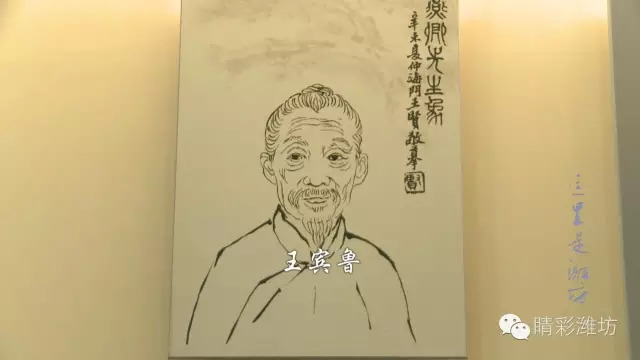 燕卿先生象
辛未夏仲海门王贤敬摹
王宾鲁
这里是潍坊
睛彩潍坊